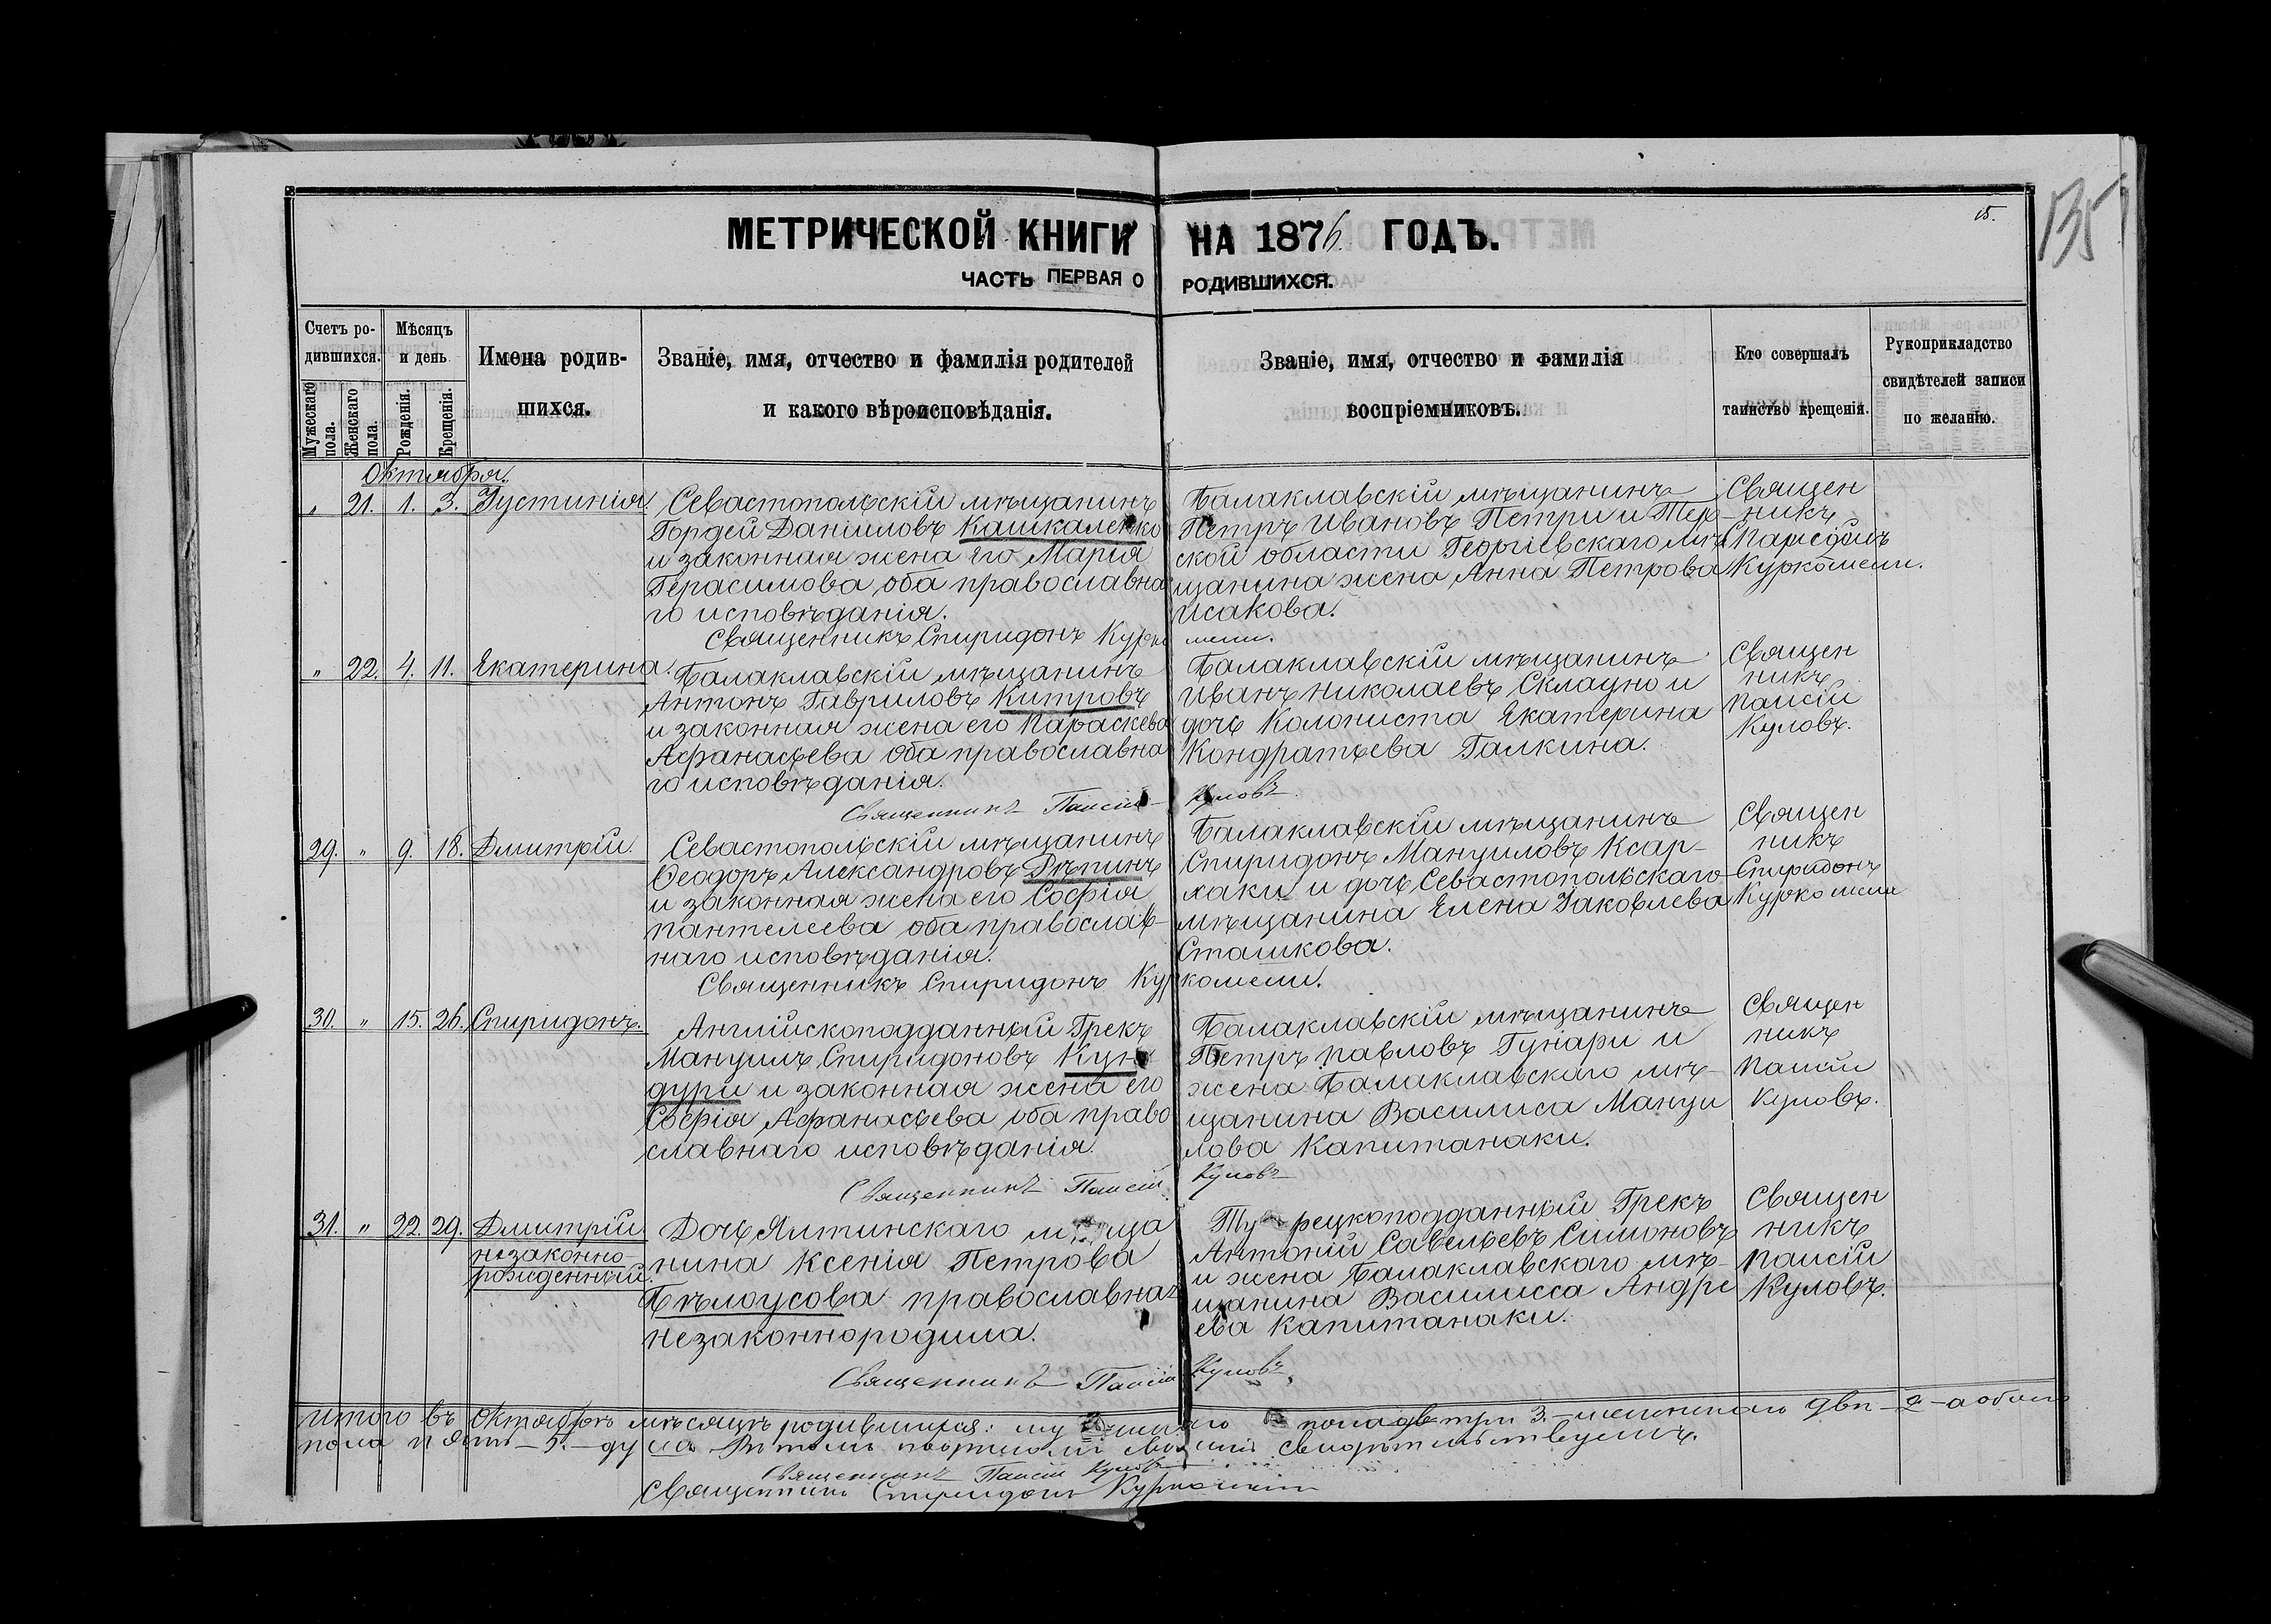 15.
135
МЕТРИЧЕСКОЙ КНИГИ НА 1876 ГОДЪ.
ЧАСТЬ ПЕРВАЯ О РОДИВШИХСЯ.
Счетъ ро-
дившихся.
Мужескаго
пола.
Женскаго
пола.
Мѣсяцъ
и день
Рожденія.
Крещенія.
Имена родив-
шихся.
Званіе, имя, отчество и фамилія родителей
и какого вѣроисповѣданія.
Званіе, имя, отчество и фамилія
воспріемниковъ.
Кто совершалъ
таинство крещенія.
Рукоприкладство
свидѣтелей записи
по желанію.
Октября.
" 21. 1. 3. Іустинія.
Севастопольскій мѣщанинъ
Гордей Даніиловъ Кашкаленко
и законная жена его Марія
Герасимова, оба православна
го исповѣданія.
Священникъ Спиридонъ Курко
Балаклавскій мѣщанинъ
Петръ Ивановъ Петри и Тер-
ской области Георгіевскаго мѣ
щанина жена Анна Петрова
Исакова.
мели.
Священ
никъ
Куркомели.
" 22. 4. 11. Екатерина.
Балаклавскій мѣщанинъ
Антонъ Гавриловъ Китровъ
и законная жена его Параскева
Афанасьева оба православна
го исповѣданія.
Священникъ Паисій
Балаклавскій мѣщанинъ
Иванъ Николаевъ Складно и
дочь Колониста Екатерина
Кондратьева Галкина.
Куловъ.
Священ
никъ
Паисій
Куловъ.
29. " 9. 18. Дмитрій.
Севастопольскій мѣщанинъ
Ѳеодоръ Александровъ Рѣпинъ
и законная жена его Софія
Пантелеева оба православ-
наго исповѣданія.
Священникъ Спиридонъ Кур
Балаклавскій мѣщанинъ
Спиридонъ Мануиловъ Ксар-
хаки и дочь Севастопольскаго
мѣщанина Елена Іаковлева
Сташкова.
комели.
Священ
никъ
Спиридонъ
Куркомели
30. " 15. 26. Спиридонъ.
Англійскоподданный Грекъ
Мануилъ Спиридоновъ Кун
дури и законная жена его
Софія Афанасьева, оба право
славнаго исповѣданія.
Священникъ Паисій
Балаклавскій мѣщанинъ
Петръ Павловъ Гунари и
жена Балаклавскаго мѣ-
щанина Василиса Мануи
лова Капитанаки.
Куловъ
Священ
никъ
Паисій
Куловъ.
31. " 22. 29. Дмитрій
незаконно-
рожденный.
Дочь Ялтинскаго мѣща
нина Ксенія Петрова
Бѣлоусова православная
незаконнородила.
Священникъ Паисій
Турецкоподданный Грекъ
Антоній Савельевъ Симоновъ
и жена Балаклавскаго мѣ-
щанина Василисса Андре
ева Капитанаки.
Куловъ
Священ
никъ
Паисій
Куловъ.
Итого въ Октябрѣ мѣсяцѣ родившихся: мужескаго пола три 3. женскаго двѣ - 2 - а обоего
пола пять - 5. - душъ. Въ томъ свидѣтельствуемъ.
Священникъ Паисій Куловъ
Священникъ Спиридонъ Куркомели